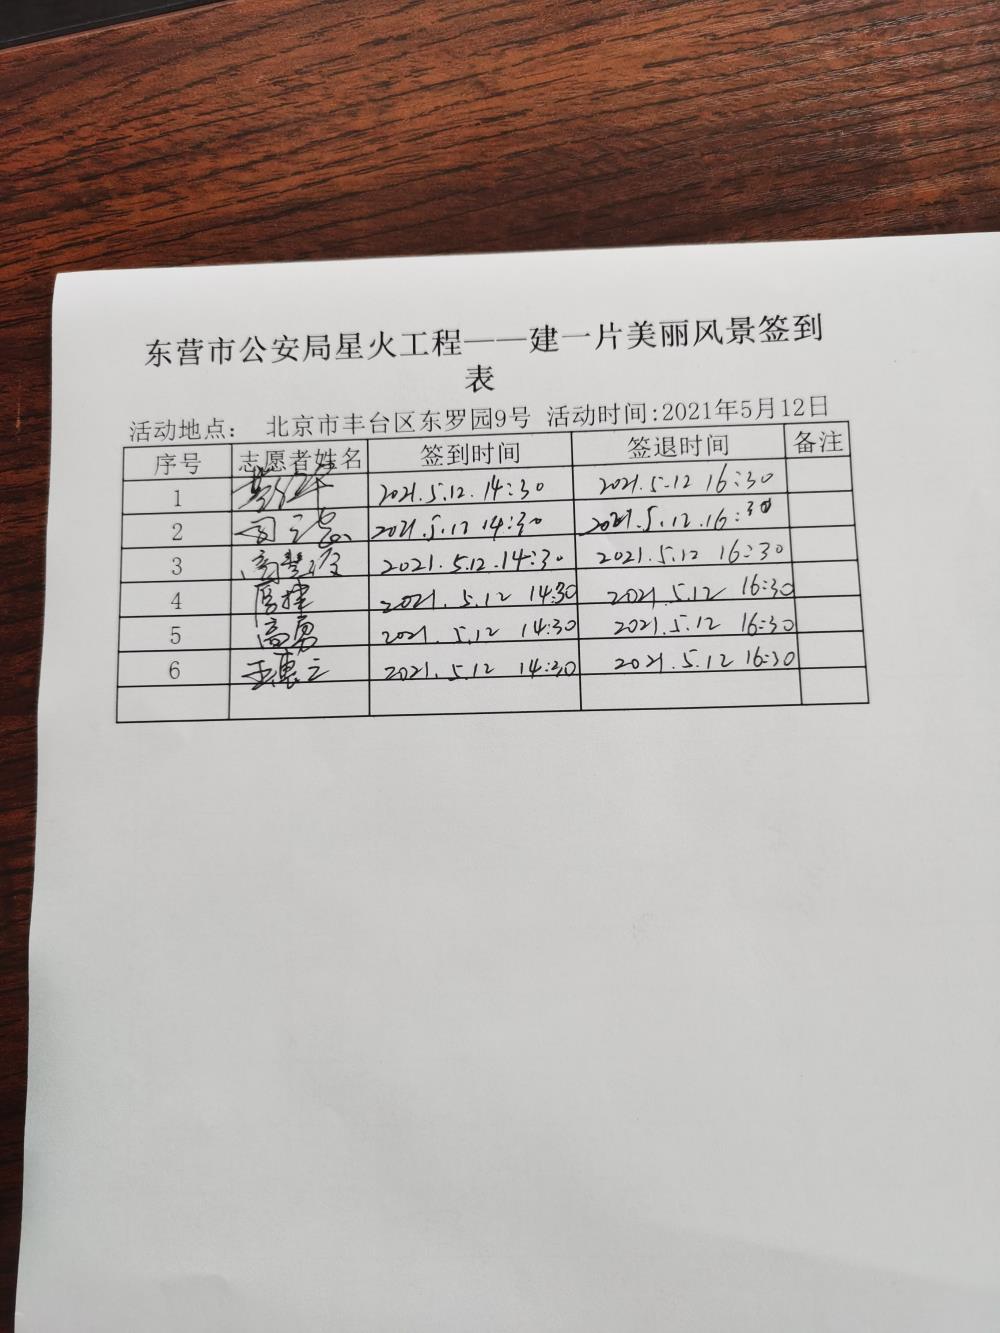 东营市公安局星火工程——建一片美丽风景签到
表
活动地点： 北京市丰台区东罗园9号 活动时间:2021年5月12日
序号 志愿者姓名 签到时间 签退时间 备注
1 2021.5.12.14:30 2021.5.12 16:30
2 2021.5.12 14:30 2021.5.12.16:30
3 2021.5.12.14:30 2021.5.12 16:30
4 2021.5.12 14:30 2021.5.12 16:30
5 高勇 2021.5.12 14:30 2021.5.12 16:30
6 王惠立 2021.5.12 14:30 2021.5.12 16:30